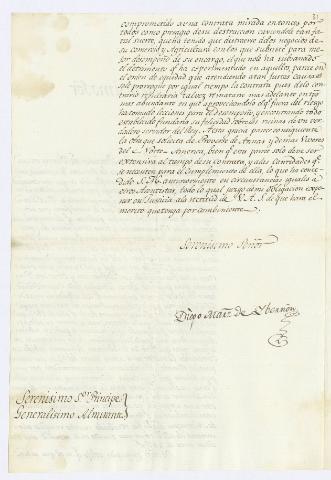 comprometido à una contrata mirada entonces por
todos como presagio de su destruccion cavendole tan fa-
tal suerte, que ha tenido que distraerse de los negocios de
su comercio y Agricultura con los que subsiste para me-
jor desempeño de su encargo, el que no ha subsanado
el detrimento qᵉ ha experimentado en aquellos, parece en
el orden de equidad que atendiendo a tan fuertes causas
se le prorrogue por igual tiempo la contrata, pues de lo con-
trario
mas abundante en que aprovechandose qᵉ fuera del riesgo
ha tomado lecciones para el desempeño, y encontrando todo
establecido fundaria su felicidad sobre las ruinas de un ver-
dadero servidor del Rey. A esta gracia parece consiguiente
la otra que solicita de Proveerle de Armas y demas Viveres
del Norte America, bien qᵉ con parece solo debe ser
extensiva al tiempo de su contrata, y a las Cantidades qᵉ
se necesiten para el Cumplimiento de ella, lo que ha conce-
dido S. M. anteriormente en circunstancias iguales a
otros Asentistas, todo lo qual juzgo de mi obligacion expo-
ner en Justicia a la rectitud de V. A. S. de que hara el
merito que tenga por combeniente.
Serenisimo Señor
Diego Marz. de
Serenisimo Sᵒʳ Principe
Generalisimo Almirante